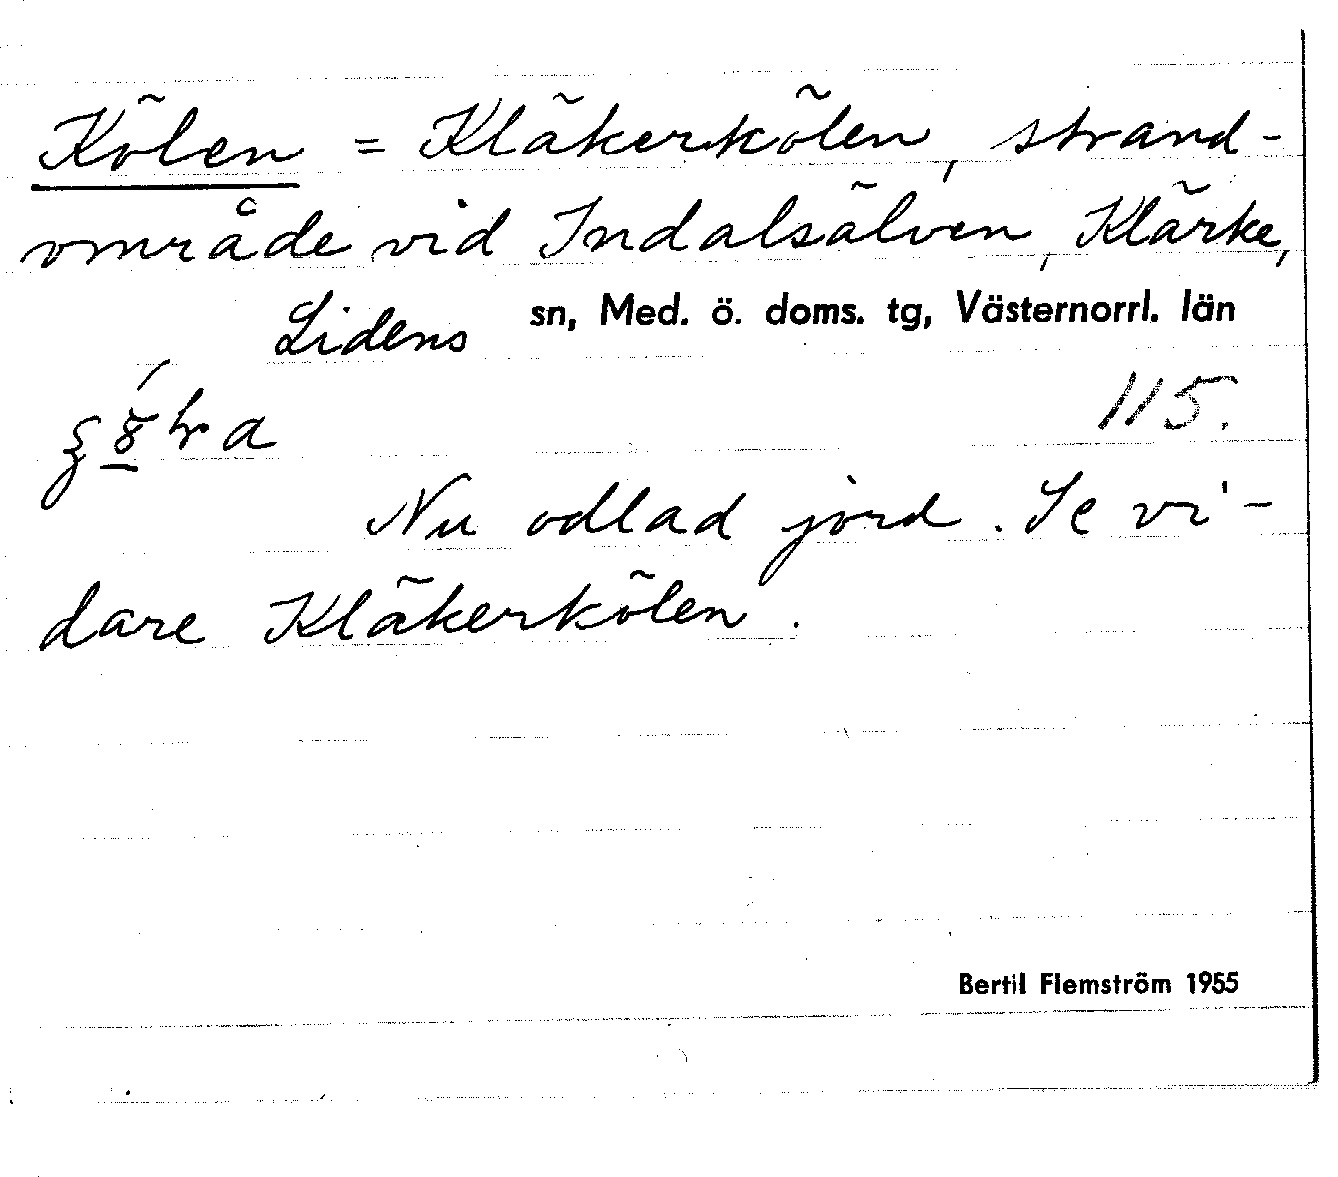 Kölen = Kläkerkölen, strand-
område vid Indalsälven, Klärke,
Lidens sn, Med. ö. doms. tg, Västernorrl. län
115.
Nu odlad jord. Se vi-
dare Kläkerkölen.
Bertil Flemström 1955